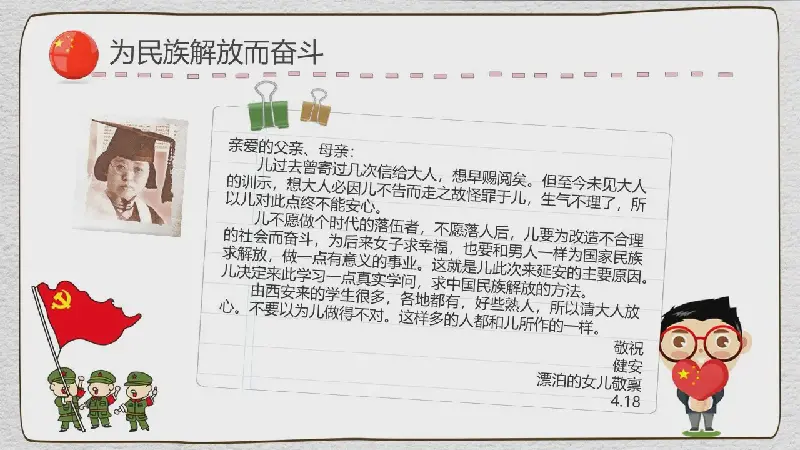 为民族解放而奋斗
亲爱的父亲、母亲：
儿过去曾寄过几次信给大人，想早赐阅矣。但至今未见大人
的训示，想大人必因儿不告而走之故怪罪于儿，生气不理了，所
以儿对此点终不能安心。
儿不愿做个时代的落伍者，不愿落人后，儿要为改造不合理
的社会而奋斗，为后来女子求幸福，也要和男人一样为国家民族
求解放，做一点有意义的事业。这就是儿此次来延安的主要原因。
儿决定来此学习一点真实学问，求中国民族解放的方法。
由西安来的学生很多，各地都有，好些熟人，所以请大人放
心。不要以为儿做得不对。这样多的人都和儿所作的一样。
敬祝
健安
漂泊的女儿敬禀
4.18